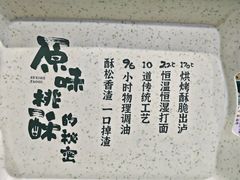 原味
桃酥
的秘密
酥松香渣 一口掉渣
96小时物理调油
10道传统工艺
22℃恒温恒湿打面
170℃烘烤酥脆出炉